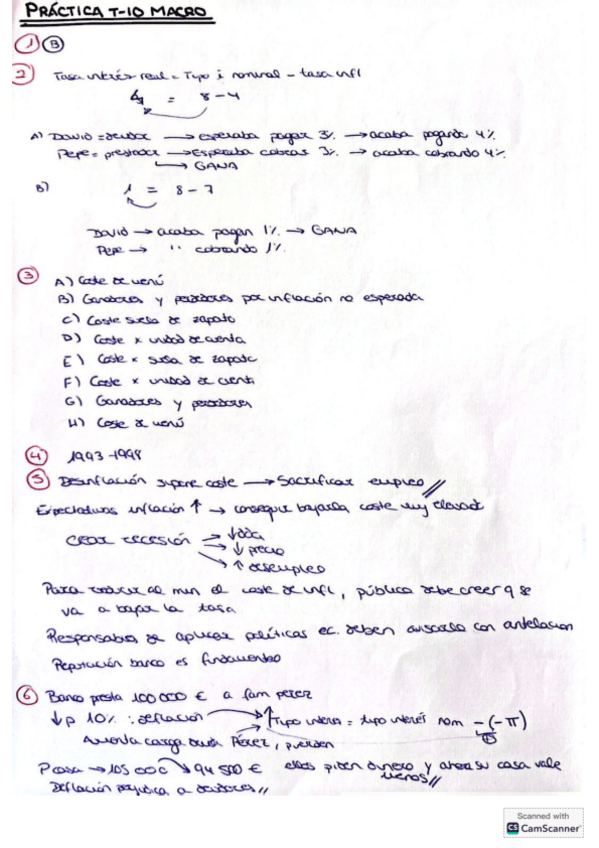 PRÁCTICA T-10 MACRO
1 B
2 Tasa interés real = Tipo i nominal - tasa infl
4 = 8 - 4
A) David = deudor → esperaba pagar 3% → acaba pagando 4%
Pepe = prestador → Esperaba cobrar 3% → acaba cobrando 4%
→ GANA
B) 1 = 8 - 7
David → acaba pagan 1% → GANA
Pepe → '' cobrando 1%
3 A) Coste de menú
B) Ganadores y perdedores por inflación no esperada
C) Coste suela de zapato
D) Coste x unidad de cuenta
E) Coste x suela de zapato
F) Coste x unidad de cuenta
G) Ganadores y perdedores
H) Coste de menú
4 1993-1998
5 Desinflación supone coste → Sacrificar empleo //
Expectativas inflación ↑ → conseguir bajarla coste muy elevado
crear recesión → ↓ dda
→ ↓ precio
→ ↑ desempleo
Para reducir al min el coste de infl, público debe creer q se
va a bajar la tasa
Responsables de aplicar políticas ec. deben avisarlo con antelacion
Reputación banco es fundamental
6 Banco presta 100 000 € a fam perez
↓ p 10% : deflación → ↑ Tipo interes = tipo interés nom - (-π)
Aumenta carga deuda Pérez, pierden
P casa → 105 000 → 94 500 € ellos piden dinero y ahora su casa vale
menos //
Deflación perjudica a deudores //
Scanned with
CS CamScanner